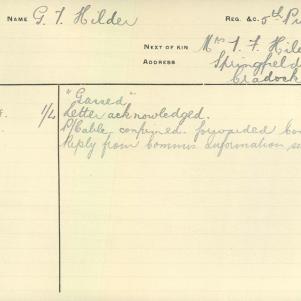 NAME G. F. Hilder REG. &C. 5th Pio
NEXT OF KIN Mrs F. F. Hild
ADDRESS Springfield
Cradock
"Gassed"
F. 1/4 Letter acknowledged.
P/Cable confirmed. forwarded
Reply from Comms information